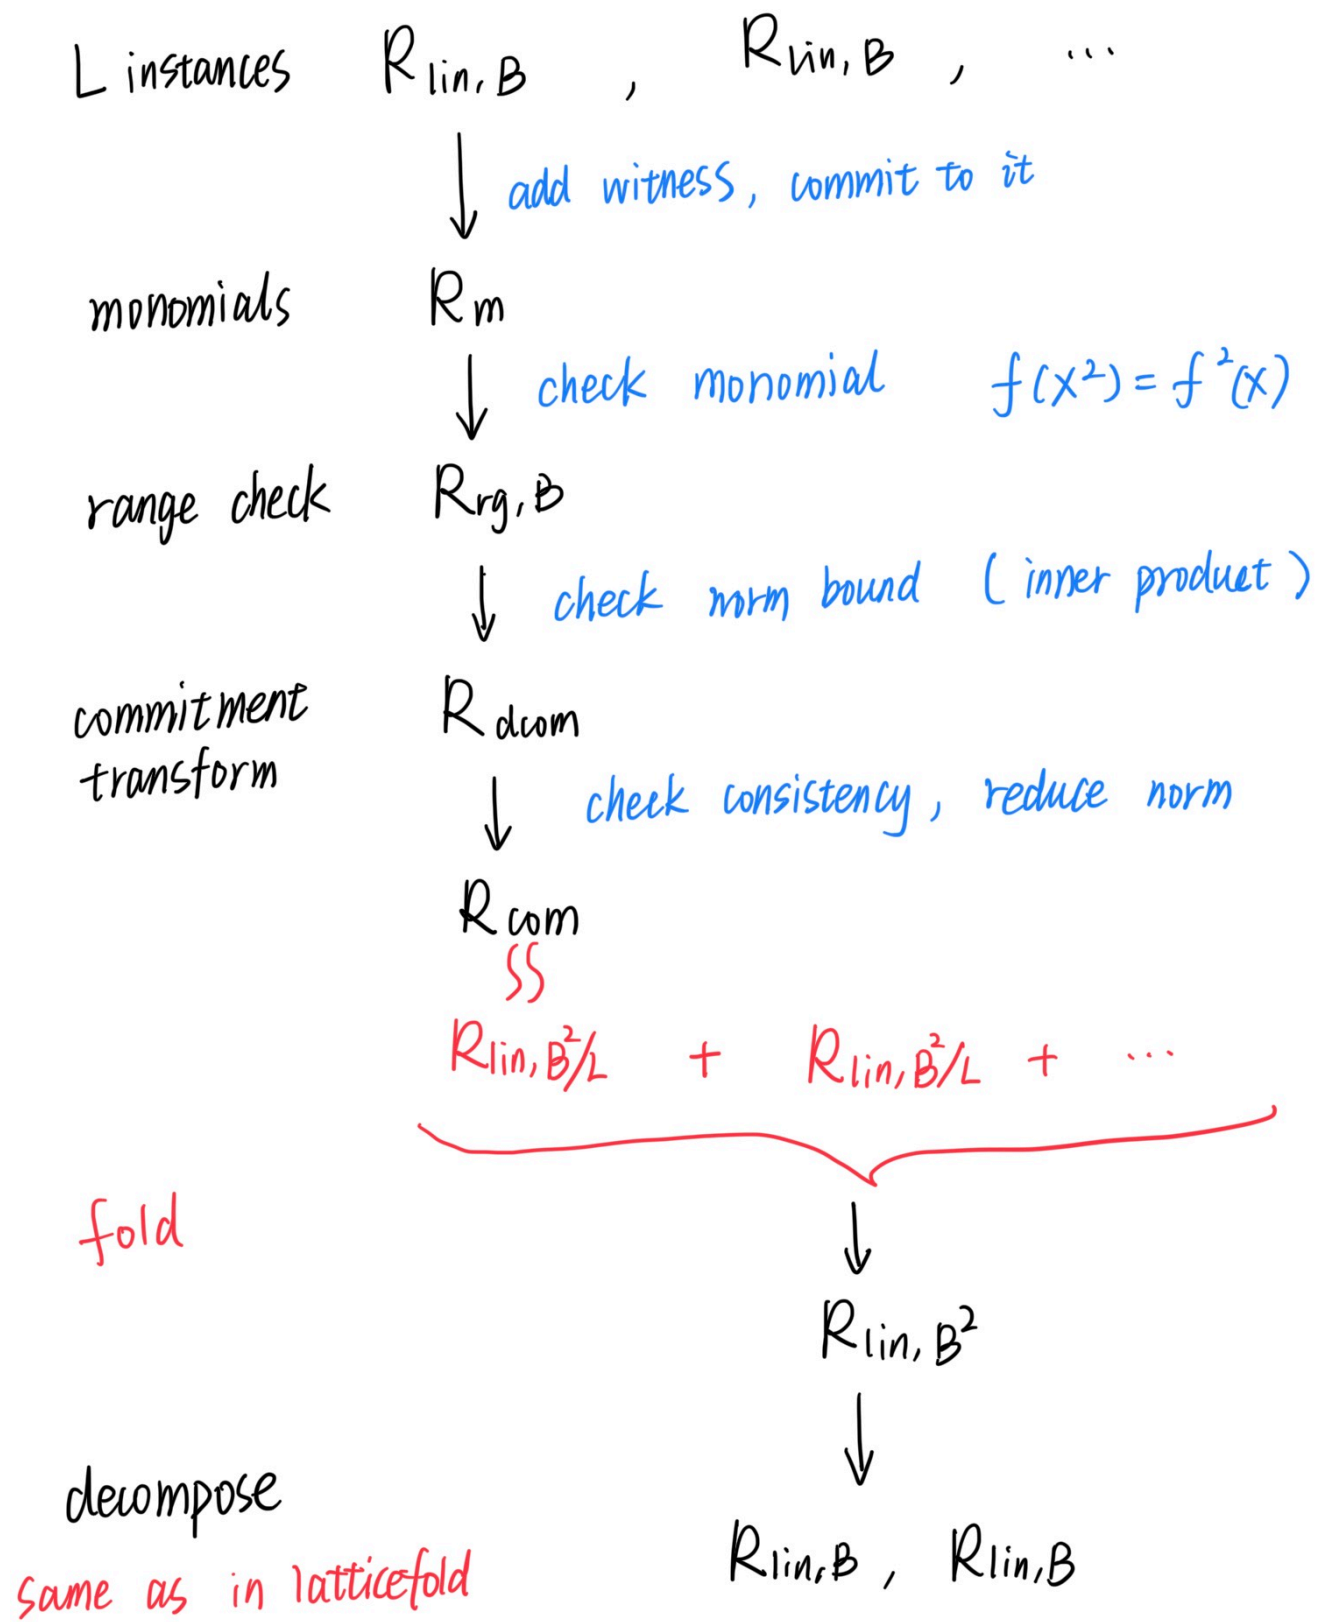 L instances R lin, B , R lin, B , ...
add witness, commit to it
monomials Rm
check monomial f(x²) = f²(x)
range check Rrg, B
check norm bound (inner product)
commitment Rdcom
transform
check consistency, reduce norm
Rcom
SS
Rlin, B²/L + Rlin, B²/L + ...
fold
Rlin, B²
decompose
Rlin, B , Rlin, B
same as in latticefold